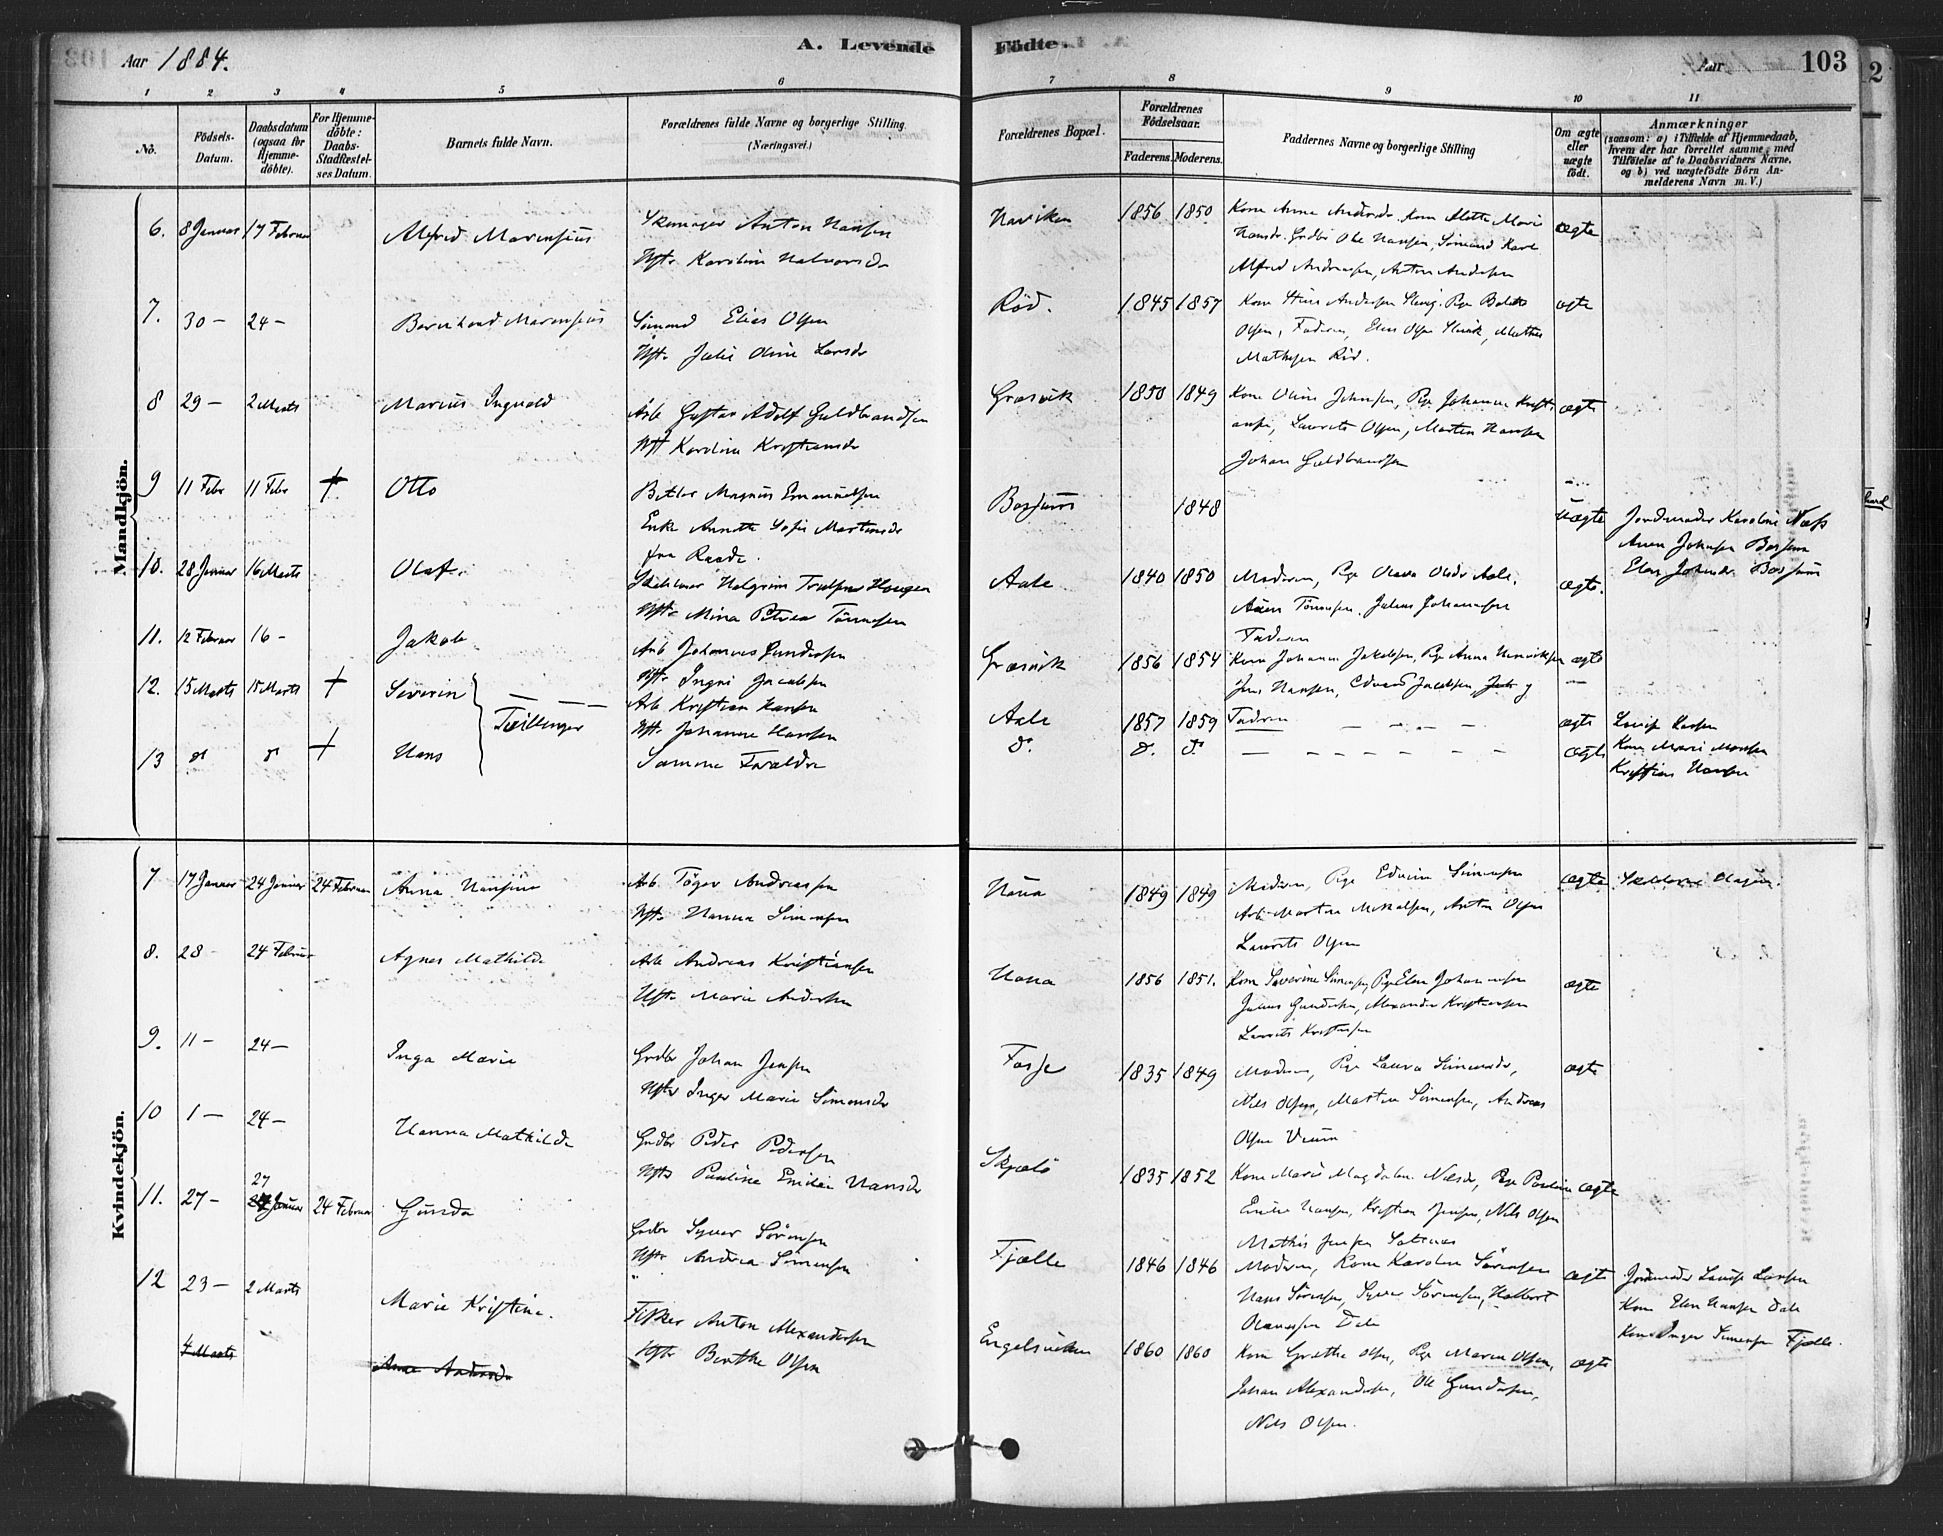 Aar 1884.
A. Levende
Födte.
Aar
103
2
1 2 3 4 5 6 7 8 9 10 11
No.
Födsels-Datum.
Daabsdatum (ogsaa for Hjemme-döbte).
For Hjemme-döbte: Daabs-Stadfæstel-ses Datum.
Barnets fulde Navn.
Forældrenes fulde Navne og borgerlige Stilling (Næringsvei.)
Forældrenes Bopæl.
Forældrenes Födselsaar.
Faderens. Moderens.
Faddernes Navne og borgerlige Stilling
Om ægte eller uægte födt.
Anmærkninger
(saasom: a) i Tilfælde af Hjemmedaab,
hvem der har forrettet samme, med
Tilföielse af to Daabsvidners Navne,
og b) ved uægtefödte Börn An-
melderens Navn m. V.)
Mandkjön.
6. 8 Januar 17 Februar
Alfred Marensius
Skomager Anton Hansen
Hft. Karoline Halvorsdr
1856 1850
Kone Anna Andersdr. Kone Alette Marie
Hansdr. Grdbr Ole Hansen, Sömand Karl
Alfred Andreassen, Anton Andersen
ægte
7. 30 — 24 —
Bernhard Marensius
Sömand Elias Olsen
Hft. Julie Oline Larsdr
Röd.
1845 1857
Olsen, Faderen, Elias Olsen Slevik, Mathis
Mathisen Röd.
ægte
8 29 — 2 Marts
Marius Ingvald
Arb Gustav Adolf Guldbrandsen
Hft Karoline Kristiansdr
Græsvik
1850 1849
Kone Oline Johnsen, Pige Johanne Krist-
ansen, Laurits Olsen, Martin Hansen
Johan Guldbrandsen
ægte
9 11 Febr 11 Febr †
Otto
Magnus Emanuelsen
Enke Annette Sofie Martinsdr
fra Raade.
1848
uægte
Jordmoder Karoline Næss
10. 28 Januar 16 Marts
Olaf.
Halgrim Trulsen Haugen
Hft. Mina Petrea Tönnesen
Aale
1840 1850
Moderen, Pige Olava Olsdr Aale,
Tönnesen, Julius Johannesen
Faderen
ægte.
11. 12 Februar 16 —
Jakob
Arb Johannes Gundersen
Hft. Ingri Jacobsen
Græsvik
1856 1854
Kone Johanne Jakobsen, Pige Anna Henriksen
Jens Hansen, Edvard Jacobsen,
ægte
12. 15 Marts 15 Marts †
Severin
Tvillinger
Arb Kristian Hansen
Hft. Johanne Hansen
Aale
1857 1859
Faderen
ægte
Lovise Larsen
13 do do †
Hans
Samme Forældre
do. do. do.
ægte
Kone Marie Monsen
Kristian Hansen
Kvindekjön.
7 17 Januar 24 Januar 24 Februar
Anna Hansine
Arb. Töger Andreassen
Hft. Hanna Simonsen
1849 1849
Moderen, Pige Edvine Simonsen
Arb. Martin Mikalsen, Anton Olsen
Laurits Olsen
ægte
8. 28 — 24 Februar
Agnes Mathilde
Arb Andreas Kristiansen
Hft. Marie Andersen
1856 1851.
Kone Severine Simensen, Pige Elen Johannesen
Julius Gundersen, Alexander Kristiansen
Laurits Kristiansen
ægte
9. 11 — 24 —
Inga Marie
Grdbr Johan Jensen
Hft Inger Marie Simonsdr
1835 1849
Moderen, Pige Laura Simensdr,
Nils Olsen, Martin Simensen, Andreas
Olsen Veum
ægte
10 1 — 24 —
Hanna Mathilde
Grdbr Peder Pedersen
Hft Pauline Emilie Hansdr
Skjælö
1835 1852
Kone Marie Magdalene Nilsdr, Pige Pauline
Emilie Hansen, Kristian Jensen, Nils Olsen
Mathis Jensen
ægte
11. 27 — 27 Januar 24 Februar
Gunda
Grdbr Syver Sörensen
Hft. Andrea Simensen
Fjælle
1846 1846
Moderen, Kone Karoline Sörensen
Hans Sörensen, Syver Sörensen, Halbert
Dale
ægte
Jordmoder Lovise Larsen
Kone Elen Hansen Dale
Kone Inger Simensen Fjælle.
12 23 — 2 Marts
Marie Kristine.
Fisker Anton Alexandersen
Hft. Berthe Olsen
Engelsviken
1860 1860
Kone Grethe Olsen, Pige Maren Olsen,
Johan Alexandersen, Ole Gundersen,
Nils Olsen.
ægte
4 Marts